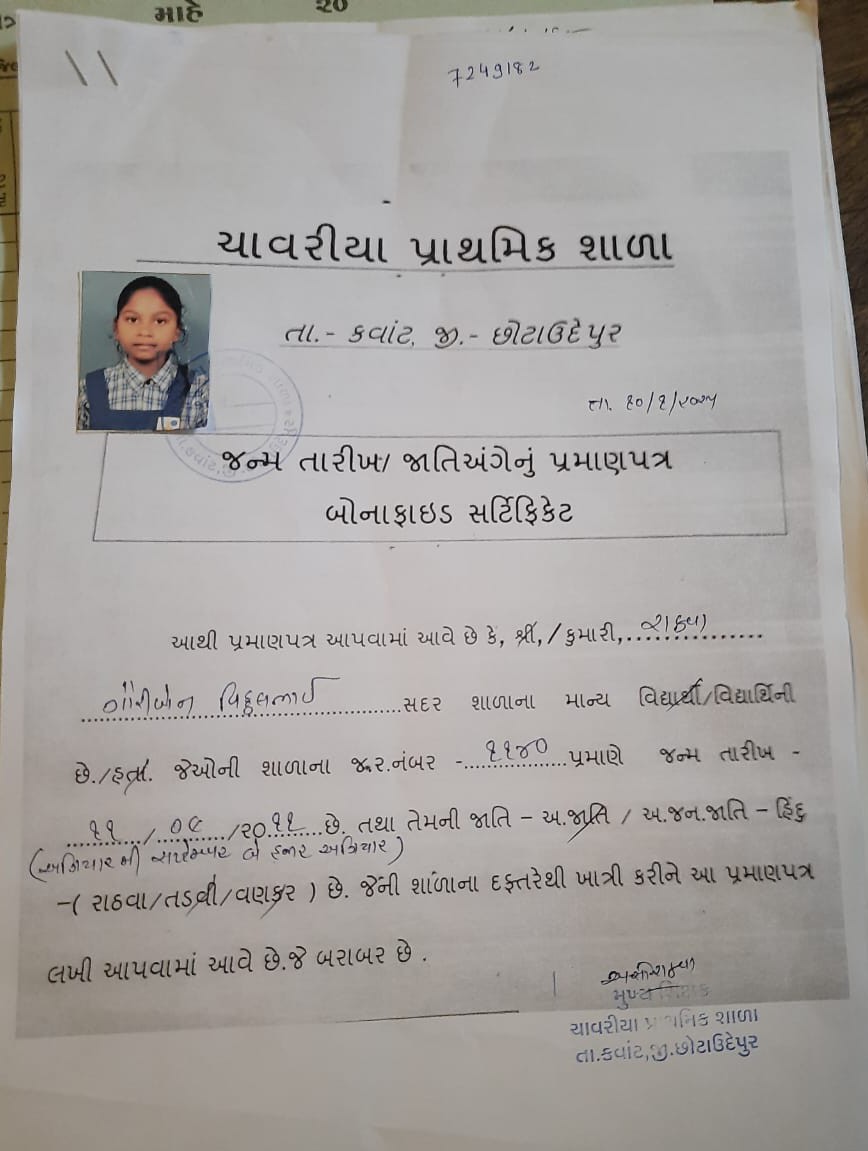 માહે ૨૦
7249182
ચાવરીયા પ્રાથમિક શાળા
તા.- કવાંટ, જી.- છોટાઉદેપુર
તા. ૧૦/૧/૨૦૨૫
જન્મ તારીખ/ જાતિઅંગેનું પ્રમાણપત્ર
બોનાફાઇડ સર્ટિફિકેટ
આથી પ્રમાણપત્ર આપવામાં આવે છે કે, શ્રી,/ કુમારી,..રાઠવા
ગૌરીબેન વિઠ્ઠલભાઈ સદર શાળાના માન્ય વિદ્યાર્થી/વિદ્યાર્થિની
છે./હતાં. જેઓની શાળાના જી.ર.નંબર -..૧૧૪૦..પ્રમાણે જન્મ તારીખ -
૧૧/૦૯/૨૦૧૧ છે. તથા તેમની જાતિ - અ.જાતિ / અ.જન.જાતિ - હિંદુ
(અગિયારમી સપ્ટેમ્બર બે હજાર અગિયાર)
-( રાઠવા/તડવી/વણકર ) છે. જેની શાળાના દફ્તરેથી ખાત્રી કરીને આ પ્રમાણપત્ર
લખી આપવામાં આવે છે.જે બરાબર છે .
મુખ્ય શિક્ષક
ચાવરીયા પ્રાથમિક શાળા
તા.કવાંટ,જી.છોટાઉદેપુર